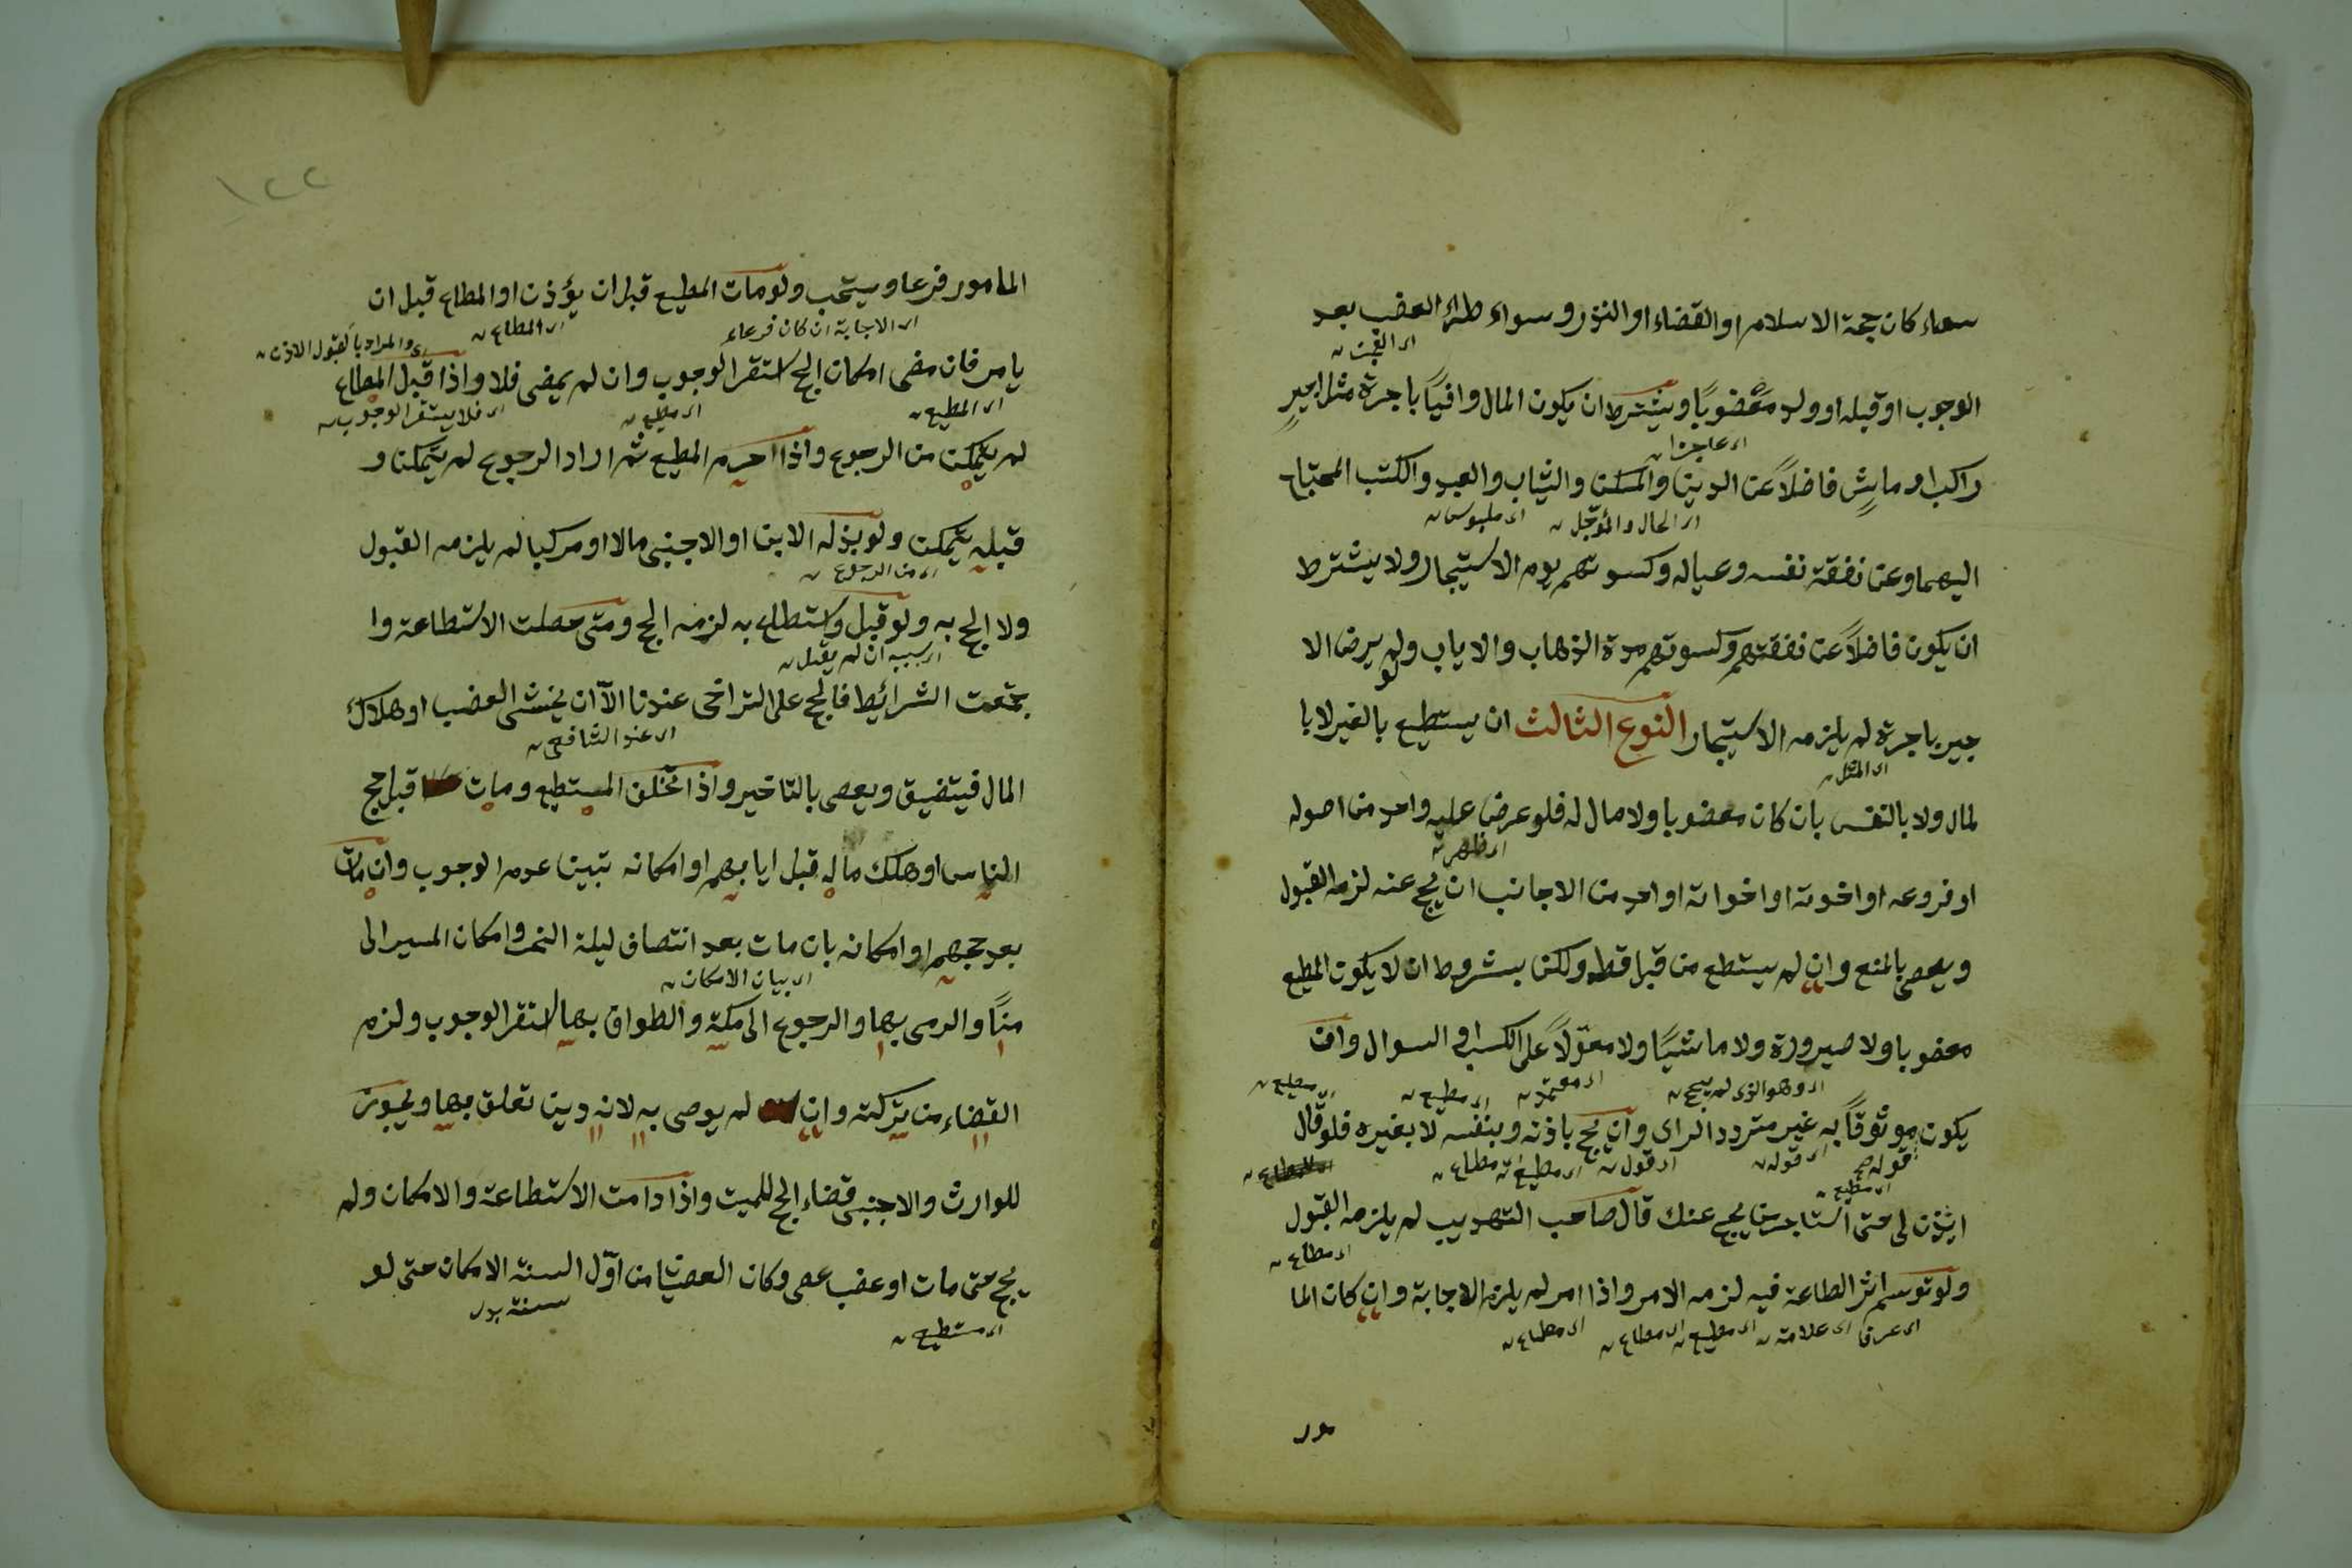 سواء كان حجة الاسلام او القضاء او النذر وسواء طرأ العضب بعد
الوجوب او قبله او ولد معضوبًا ويشترط ان يكون المال وافيًا باجرة مثل اجيرٍ
اى عاجزا
راكب او ماشٍ فاضلاً عن الدين والمسكن والثياب والعبد والكتب المحتاج
اى الحال والمؤجل اى ملبوس
اليهما وعن نفقة نفسه وعياله وكسوتهم يوم الاستيجار ولا يشترط
ان يكون فاضلاً عن نفقتهم وكسوتهم مدة الذهاب والاياب ولو لم يرض الا
جير باجرة لم يلزمه الاستيجار النوع الثالث ان يستطيع بالغير لا با
اى المثل
لمال ولا بالنفس بان كان معضوبا ولا مال له فلو عرض عليه واحد من اصوله
اى ظهر
او فروعه او اخوته او اخواته او احد من الاجانب ان يحج عنه لزمه القبول
ويعصى بالمنع وان لم يستطع من قبل قط ولكن بشروط ان لا يكون المطيع
معضوبا ولا صيرورة ولا ماشيًا ولا معوّلاً على الكسب او السوال وان
اى وهو الذى لم يحج اى معتمد اى مطيع اى مطيع
يكون موثوقًا به غير متردد الراى وان يحج باذنه وبنفسه لا بغيره فلو قال
اى قوله اى قول اى مطيع اى مطاع
ائذن لى حتى استاجر من يحج عنك قال صاحب التهذيب لم يلزمه القبول
اى مطيع
اى مطاع
ولو توسم اثر الطاعة فيه لزمه الامر واذا امر لم يلزم الاجابة وان كان الما
اى عرف اى علامة اى مطيع اى مطاع اى مطاع
مور
١٢٢
المامور فرعا ويستحب ولو مات المطيع قبل ان يؤذن او المطاع قبل ان
اى الاجابة ان كان فرعاء اى المطاع والمراد بالقبول الاذن
يامر فان مضى امكان الحج استقر الوجوب وان لم يمضى فلا واذا قبل المطاع
اى المطيع اى مطيع اى فلا يستقر الوجوب
لم يتمكن من الرجوع واذا احرم المطيع ثم اراد الرجوع لم يتمكن و
قبله يتمكن ولو بذله الابن او الاجنبى مالا او مركبا لم يلزمه القبول
اى من الرجوع
ولا الحج به ولو قبل واستطاع به لزمه الحج ومتى حصلت الاستطاعة وا
اى بسببه ان لم يقبل
جتمعت الشرائط فالحج على التراخى عندنا الاّ ان يخشى العضب او هلاك
اى عند الشافعى
المال فيتضيق ويعصى بالتاخير واذا تخلف المستطيع ومات قبل حج
الناس او هلك ماله قبل ايابهم او امكانه تبين عدم الوجوب وان مات
بعد حجهم او امكانه بان مات بعد انتصاف ليلة النحر وامكان المسير الى
اى بيان الامكان
منًا والرمى بها والرجوع الى مكة والطواف بها استقر الوجوب ولزم
القضاء من تركته وان لم يوصى به لانه دين تعلق بها ويجوز
للوارث والاجنبى قضاء الحج للميت واذا دامت الاستطاعة والامكان ولم
يحج حتى مات او عضب عصى وكان العصيان من اوّل السنة الامكان حتى لو
اى مستطيع